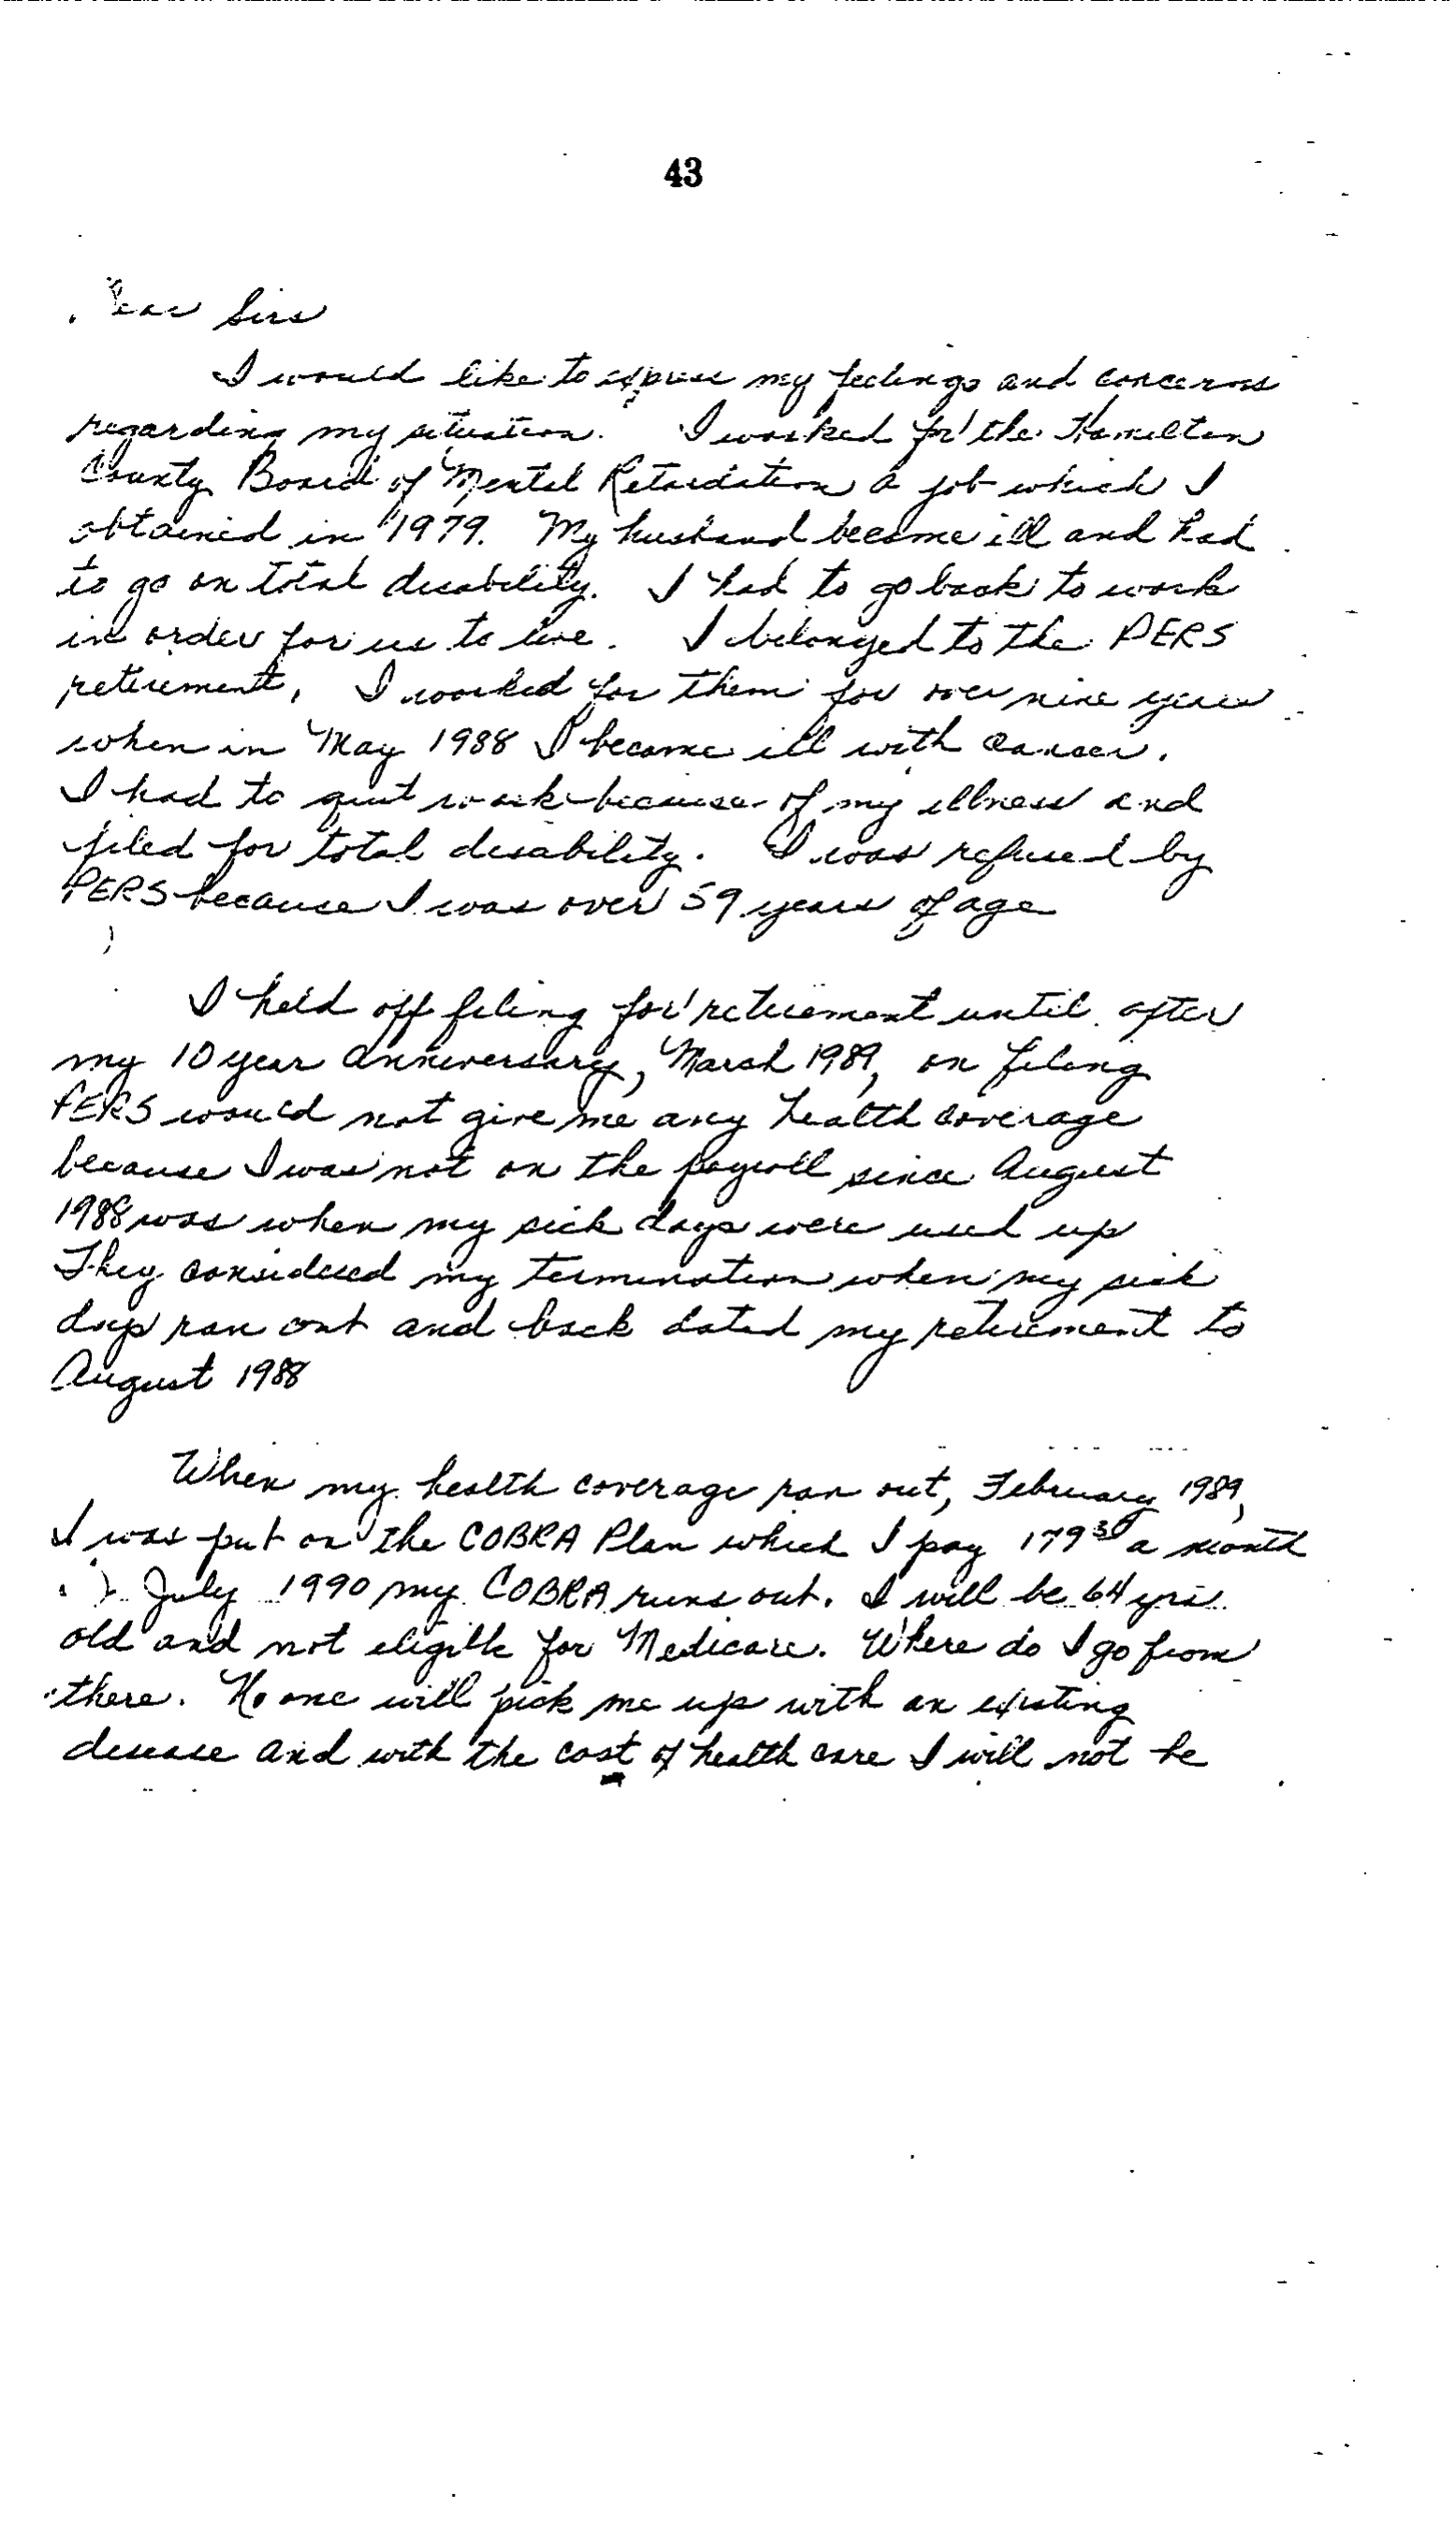 43
Dear Sirs
I would like to express my feelings and concerns
regarding my situation. I worked for the Hamilton
County Board of Mental Retardation a job which I
obtained in 1979. My husband became ill and had
to go on total disability. I had to go back to work
in order for us to live. I belonged to the PERS
retirement, I worked for them for over nine years
when in May 1988 I became ill with cancer.
I had to quit work because of my illness and
filed for total disability. I was refused by
PERS because I was over 59 years of age
I held off filing for retirement until after
my 10 year anniversary, March 1989, on filing
PERS would not give me any health coverage
because I was not on the payroll since August
1988 was when my sick days were used up
They considered my termination when my sick
days ran out and back dated my retirement to
August 1988
When my health coverage ran out, February 1989,
I was put on the COBRA Plan which I pay 179 30 a month
July 1990 my COBRA runs out. I will be 64 yrs.
old and not eligible for Medicare. Where do I go from
there. No one will pick me up with an existing
disease and with the cost of health care I will not be